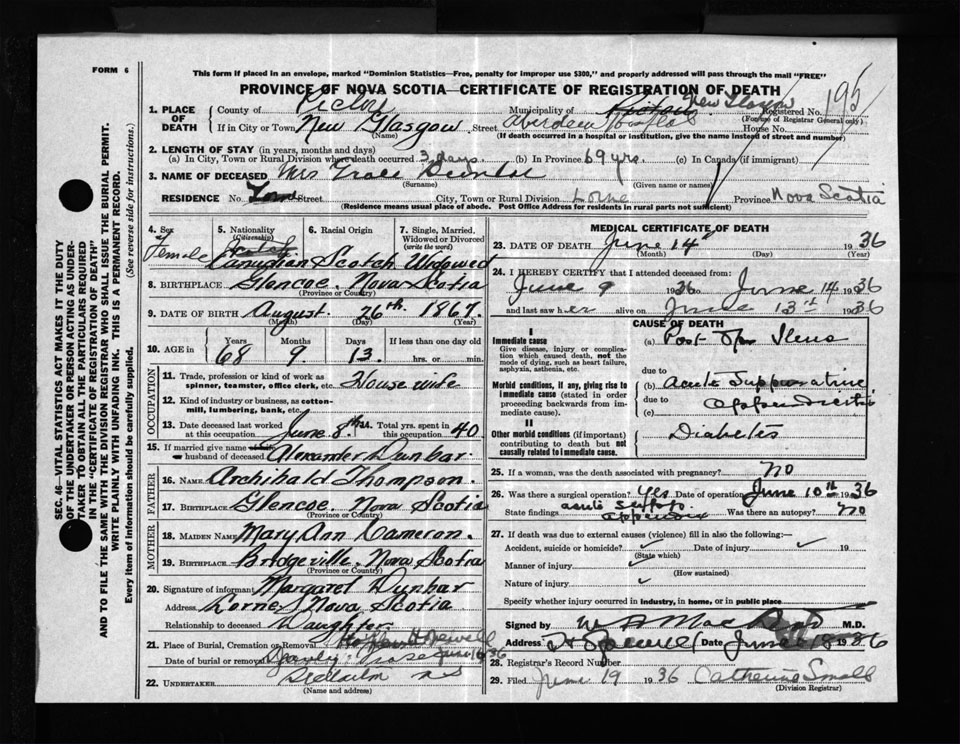 FORM 6
This form if placed in an envelope, marked "Dominion Statistics—Free, penalty for improper use $300," and properly addressed will pass through the mail "FREE"
PROVINCE OF NOVA SCOTIA—CERTIFICATE OF REGISTRATION OF DEATH
1. PLACE OF DEATH County of Pictou Municipality of Pictou New Glasgow Registered No. 195
(For use of Registrar General only)
If in City or Town New Glasgow Street Aberdeen Hospital House No.
(Name) (If death occurred in a hospital or institution, give the name instead of street and number)
2. LENGTH OF STAY (in years, months and days)
(a) In City, Town or Rural Division where death occurred 3 days. (b) In Province 69 yrs. (c) In Canada (if immigrant)
3. NAME OF DECEASED Mrs Dunbar
(Surname) (Given name or names)
RESIDENCE No. Street City, Town or Rural Division Lorne Province Nova Scotia
(Residence means usual place of abode. Post Office Address for residents in rural parts not sufficient)
4. Sex 5. Nationality (Citizenship) 6. Racial Origin 7. Single, Married, Widowed or Divorced (write the word)
Female Canadian Scotch Widowed
8. BIRTHPLACE Glencoe, Nova Scotia
(Province or Country)
9. DATE OF BIRTH August 26th 1867.
(Month) (Day) (Year)
10. AGE in Years Months Days If less than one day old
68 9 13 hrs. or min.
OCCUPATION
11. Trade, profession or kind of work as spinner, teamster, office clerk, etc. House wife
12. Kind of industry or business, as cotton-mill, lumbering, bank, etc.
13. Date deceased last worked at this occupation June 8th 14. Total yrs. spent in this occupation 40
15. If married give name of wife or husband of deceased Alexander Dunbar.
FATHER
16. NAME Archibald Thompson.
17. BIRTHPLACE Glencoe, Nova Scotia
(Province or Country)
MOTHER
18. MAIDEN NAME Mary Ann Cameron.
19. BIRTHPLACE Bridgeville, Nova Scotia
(Province or Country)
20. Signature of informant Margaret Dunbar
Address Lorne, Nova Scotia
Relationship to deceased Daughter
21. Place of Burial, Cremation or Removal Hopewell
Date of burial or removal June 16 36
22. UNDERTAKER
(Name and address)
MEDICAL CERTIFICATE OF DEATH
23. DATE OF DEATH June 14th 1936
(Month) (Day) (Year)
24. I HEREBY CERTIFY that I attended deceased from:
June 9 1936 to June 14 1936
and last saw her alive on June 13th 1936
CAUSE OF DEATH
I
Immediate cause
Give disease, injury or complication which caused death, not the mode of dying, such as heart failure, asphyxia, asthenia, etc.
(a) Post Op Ileus
due to
Morbid conditions, if any, giving rise to immediate cause (stated in order proceeding backwards from immediate cause).
(b) Acute Suppurative
due to appendicitis
(c)
II
Other morbid conditions (if important) contributing to death but not causally related to immediate cause.
Diabetes
25. If a woman, was the death associated with pregnancy? no
26. Was there a surgical operation? Yes Date of operation June 10th 1936
State findings acute suppop. appendix Was there an autopsy? no
27. If death was due to external causes (violence) fill in also the following:—
Accident, suicide or homicide? Date of injury 19
(State which)
Manner of injury
(How sustained)
Nature of injury
Specify whether injury occurred in industry, in home, or in public place
Signed by M.D.
Address Hopewell Date June 18 1936
28. Registrar's Record Number
29. Filed June 19 1936 Catherine Small
(Division Registrar)
SEC. 46—VITAL STATISTICS ACT MAKES IT THE DUTY
OF THE UNDERTAKER OR PERSON ACTING AS UNDER-
TAKER TO OBTAIN ALL THE PARTICULARS REQUIRED
IN THE "CERTIFICATE OF REGISTRATION OF DEATH"
AND TO FILE THE SAME WITH THE DIVISION REGISTRAR WHO SHALL ISSUE THE BURIAL PERMIT.
WRITE PLAINLY WITH UNFADING INK. THIS IS A PERMANENT RECORD.
Every item of information should be carefully supplied. (See reverse side for instructions.)